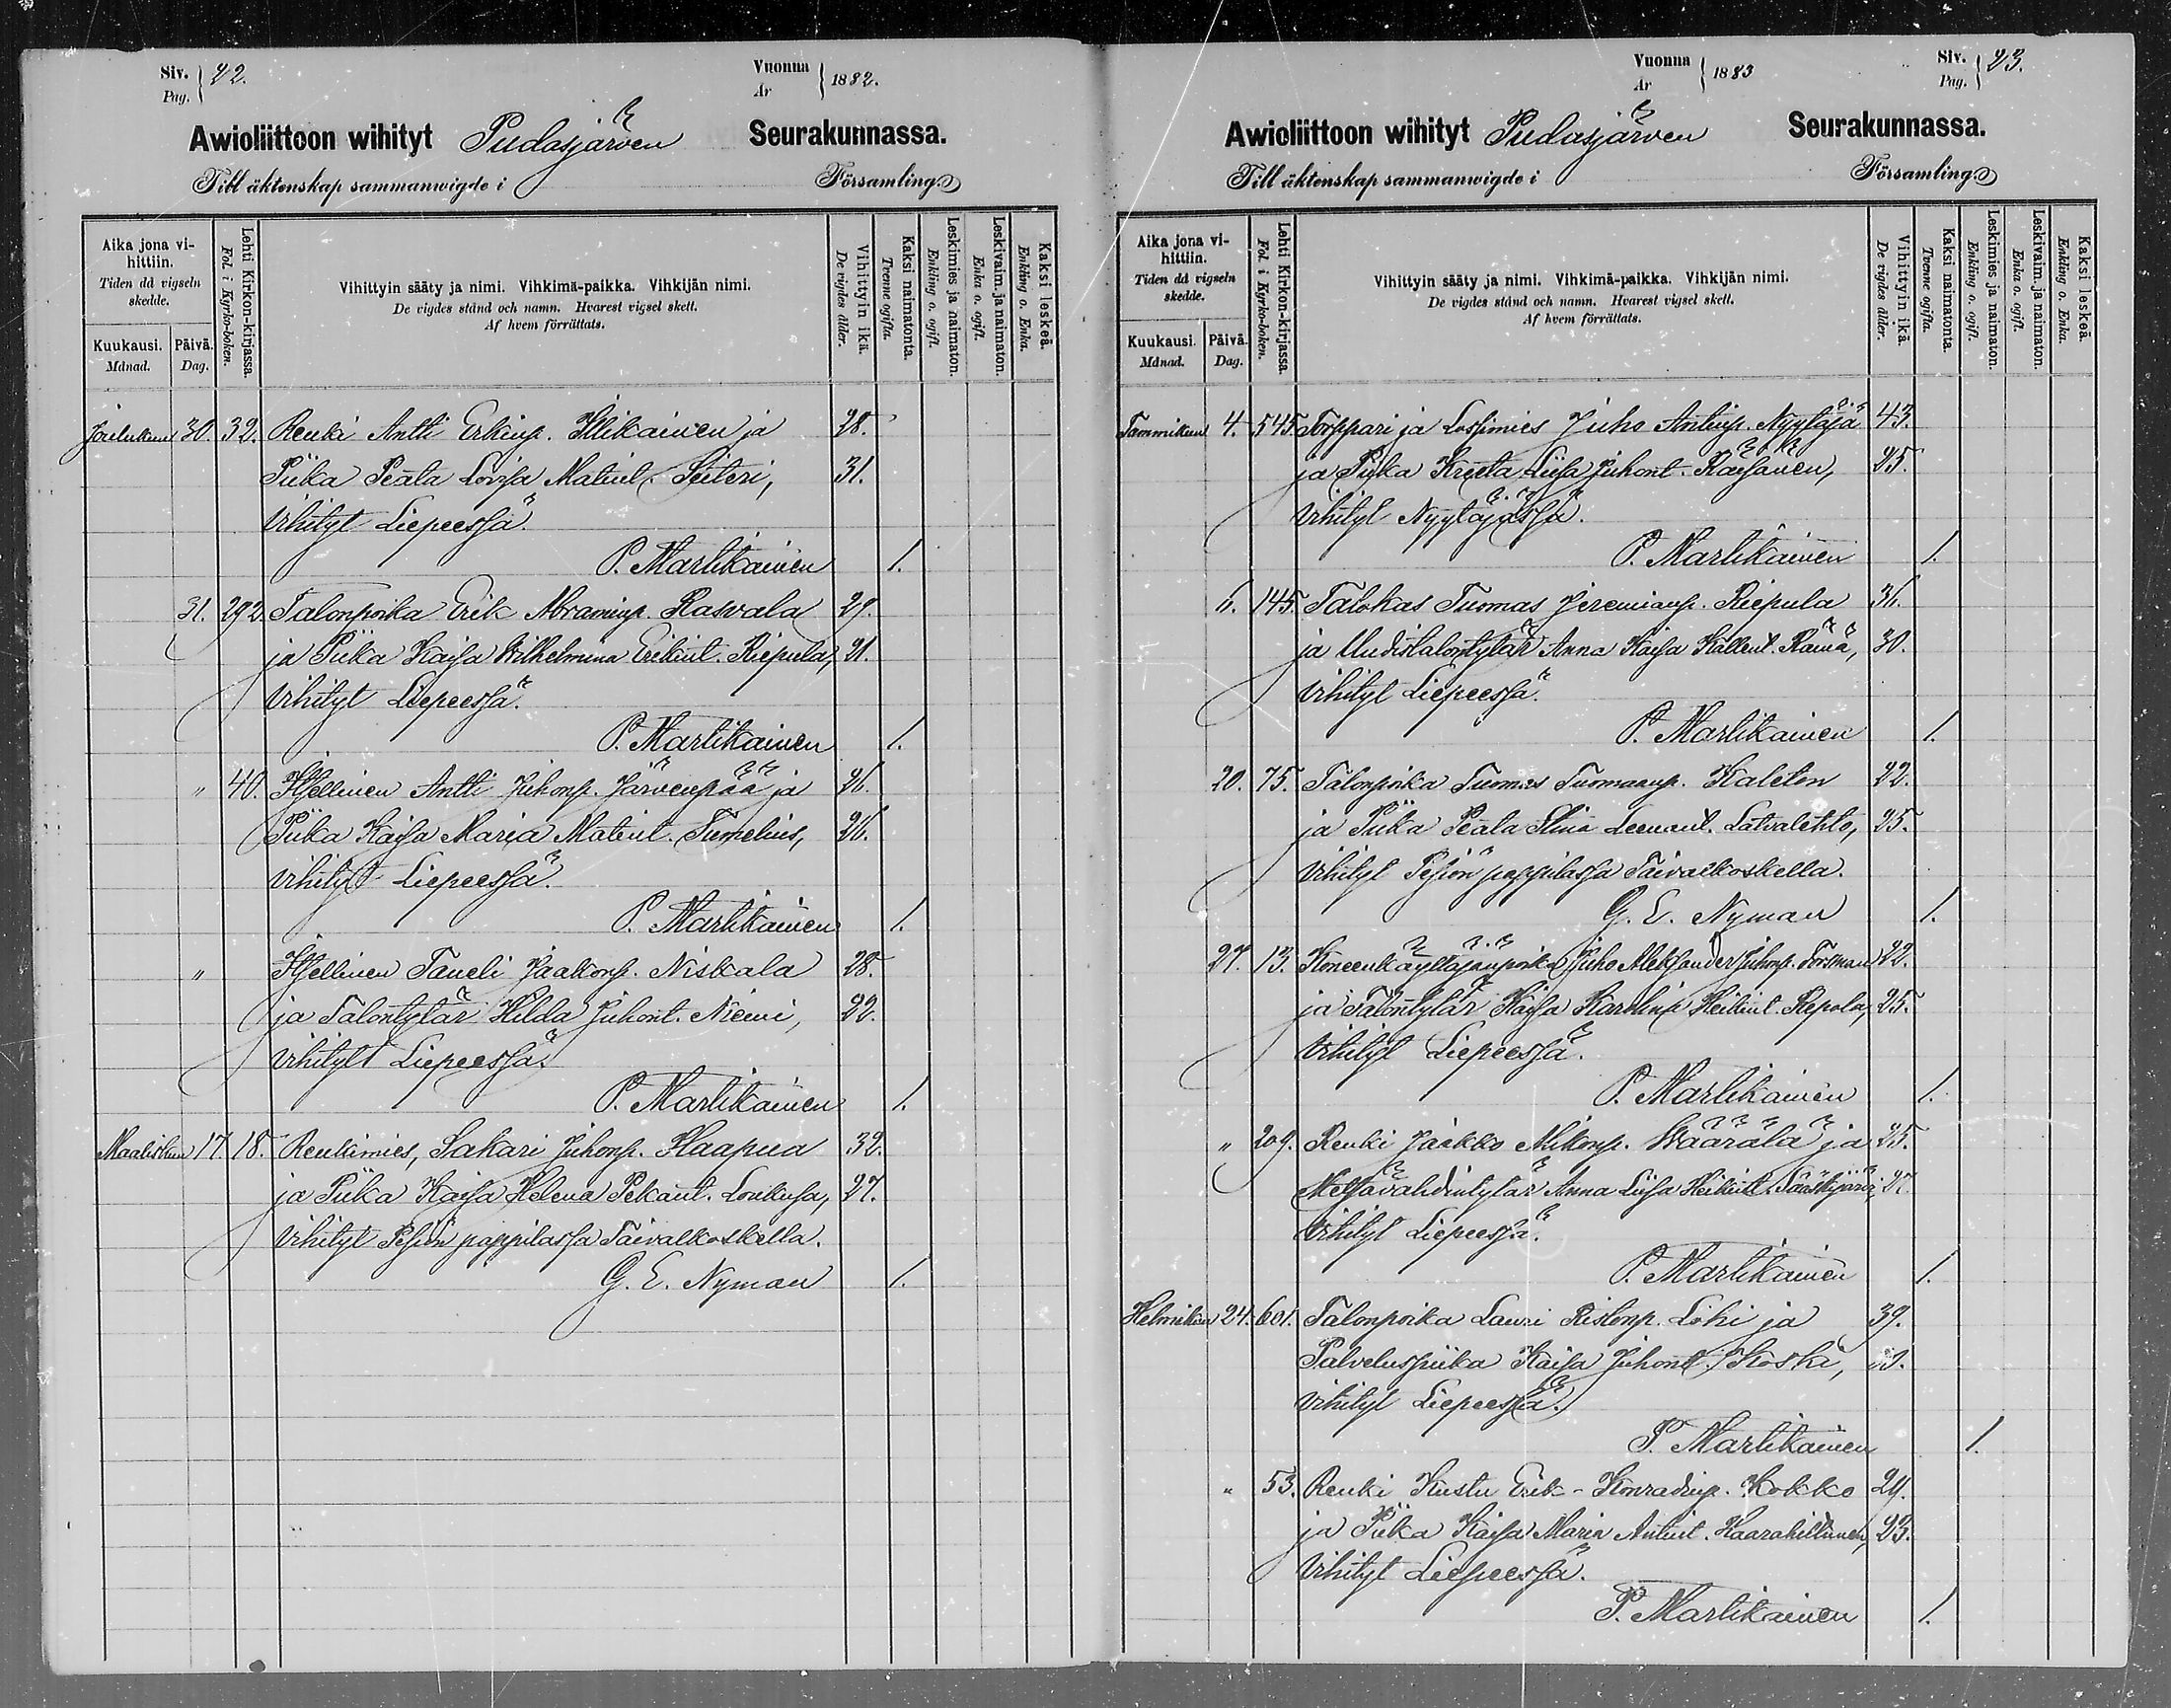 Siv. 22.
Pag.
Vuonna 1882.
År
Awioliittoon wihityt Pudasjärven Seurakunnassa.
Till äktenskap sammanwigde i Församling
Aika jona vihittiin.
Tiden då vigseln skedde.
Kuukausi. Månad.
Päivä. Dag.
Lehti Kirkon-kirjassa.
Fol. i Kyrko-boken.
Vihittyin sääty ja nimi. Vihkimä-paikka. Vihkijän nimi.
De vigdes stånd och namn. Hvarest vigsel skett.
Af hvem förrättats.
Vihittyin ikä.
De vigdes ålder.
Kaksi naimatonta.
Tvenne ogifta.
Leskimies ja naimaton.
Enkling o. ogift.
Leskivaim. ja naimaton.
Enka o. ogift.
Kaksi leskeä.
Enkling o. Enka.
Joulukuu 30. 32. Renki Antti Erkinp. Illikainen ja 28.
Piika Peata Lovisa Matint. Seiteri, 31.
Vihityt Liepeessä.
P. Martikainen 1.
31. 292. Talonpoika Erik Abraminp. Rasvala 29.
ja Piika Kaisa Wilhelmina Erkint. Riepula, 21.
Vihityt Liepeessä.
P. Martikainen 1.
" 40. Itsellinen Antti Juhonp. Järvenpää ja 26.
Piika Kaisa Maria Matint. Tumelius, 26.
Vihityt Liepeessä.
P. Martikainen 1.
" Itsellinen Taneli Jaakonp. Niskala 28.
ja Talontytär Hilda Juhont. Niemi, 22.
Vihityt Liepeessä.
P. Martikainen 1.
Maaliskuu 17. 18. Renkimies, Sakari Juhonp. Haapua 32.
ja Piika Kaisa Helena Pekant. Lonikusa, 27.
Vihityt Pesiön pappilassa Taivalkoskella.
G. E. Nyman 1.
Vuonna 1883
År
Siv. 23.
Pag.
Awioliittoon wihityt Pudasjärven Seurakunnassa.
Till äktenskap sammanwigde i Församling
Aika jona vihittiin.
Tiden då vigseln skedde.
Kuukausi. Månad.
Päivä. Dag.
Lehti Kirkon-kirjassa.
Fol. i Kyrko-boken.
Vihittyin sääty ja nimi. Vihkimä-paikka. Vihkijän nimi.
De vigdes stånd och namn. Hvarest vigsel skett.
Af hvem förrättats.
Vihittyin ikä.
De vigdes ålder.
Kaksi naimatonta.
Tvenne ogifta.
Leskimies ja naimaton.
Enkling o. ogift.
Leskivaim. ja naimaton.
Enka o. ogift.
Kaksi leskeä.
Enkling o. Enka.
Tammikuu 4. 545. Torppari ja Leskimies Juho Antinp. Nyytäjä 43.
ja Piika Kreeta Liisa Juhont. Räisänen, 25.
Vihityt Nyytäjässä.
P. Martikainen 1.
6. 145. Talokas Tuomas Jeremianp. Riepula 36.
ja Uudistalontytär Anna Kaisa Kallent. Rämä, 30.
Vihityt Liepeessä.
P. Martikainen 1.
20. 75. Talonpoika Tuomas Tuomaanp. Kaleton 22.
ja Piika Peata Stina Leenant. Latvalehto, 25.
Vihityt Pesiön pappilassa Taivalkoskella.
G. E. Nyman 1.
27. 13. Koneenkäyttäjänpoika Juho Aleksander Juhonp. Forsman 22.
ja Talontytär Kaisa Karoliina Heikint. Repola, 25.
Vihityt Liepeessä.
P. Martikainen 1.
" 209. Renki Jaakko Mikonp. Määrälä ja 25.
Metsävahdintytär Anna Liisa Heikint. Sääskijärvi, 27.
Vihityt Liepeessä.
P. Martikainen 1.
Helmikuu 24. 601. Talonpoika Lauri Ristonp. Lohi ja 39.
Palveluspiika Kaisa Juhont. Koski,
Vihityt Liepeessä.
P. Martikainen 1.
" 53. Renki Kustu Erik-Konradinp. Kokko 24.
ja Piika Kaisa Maria Antint. Haarahiltunen, 23.
Vihityt Liepeessä.
P. Martikainen 1.